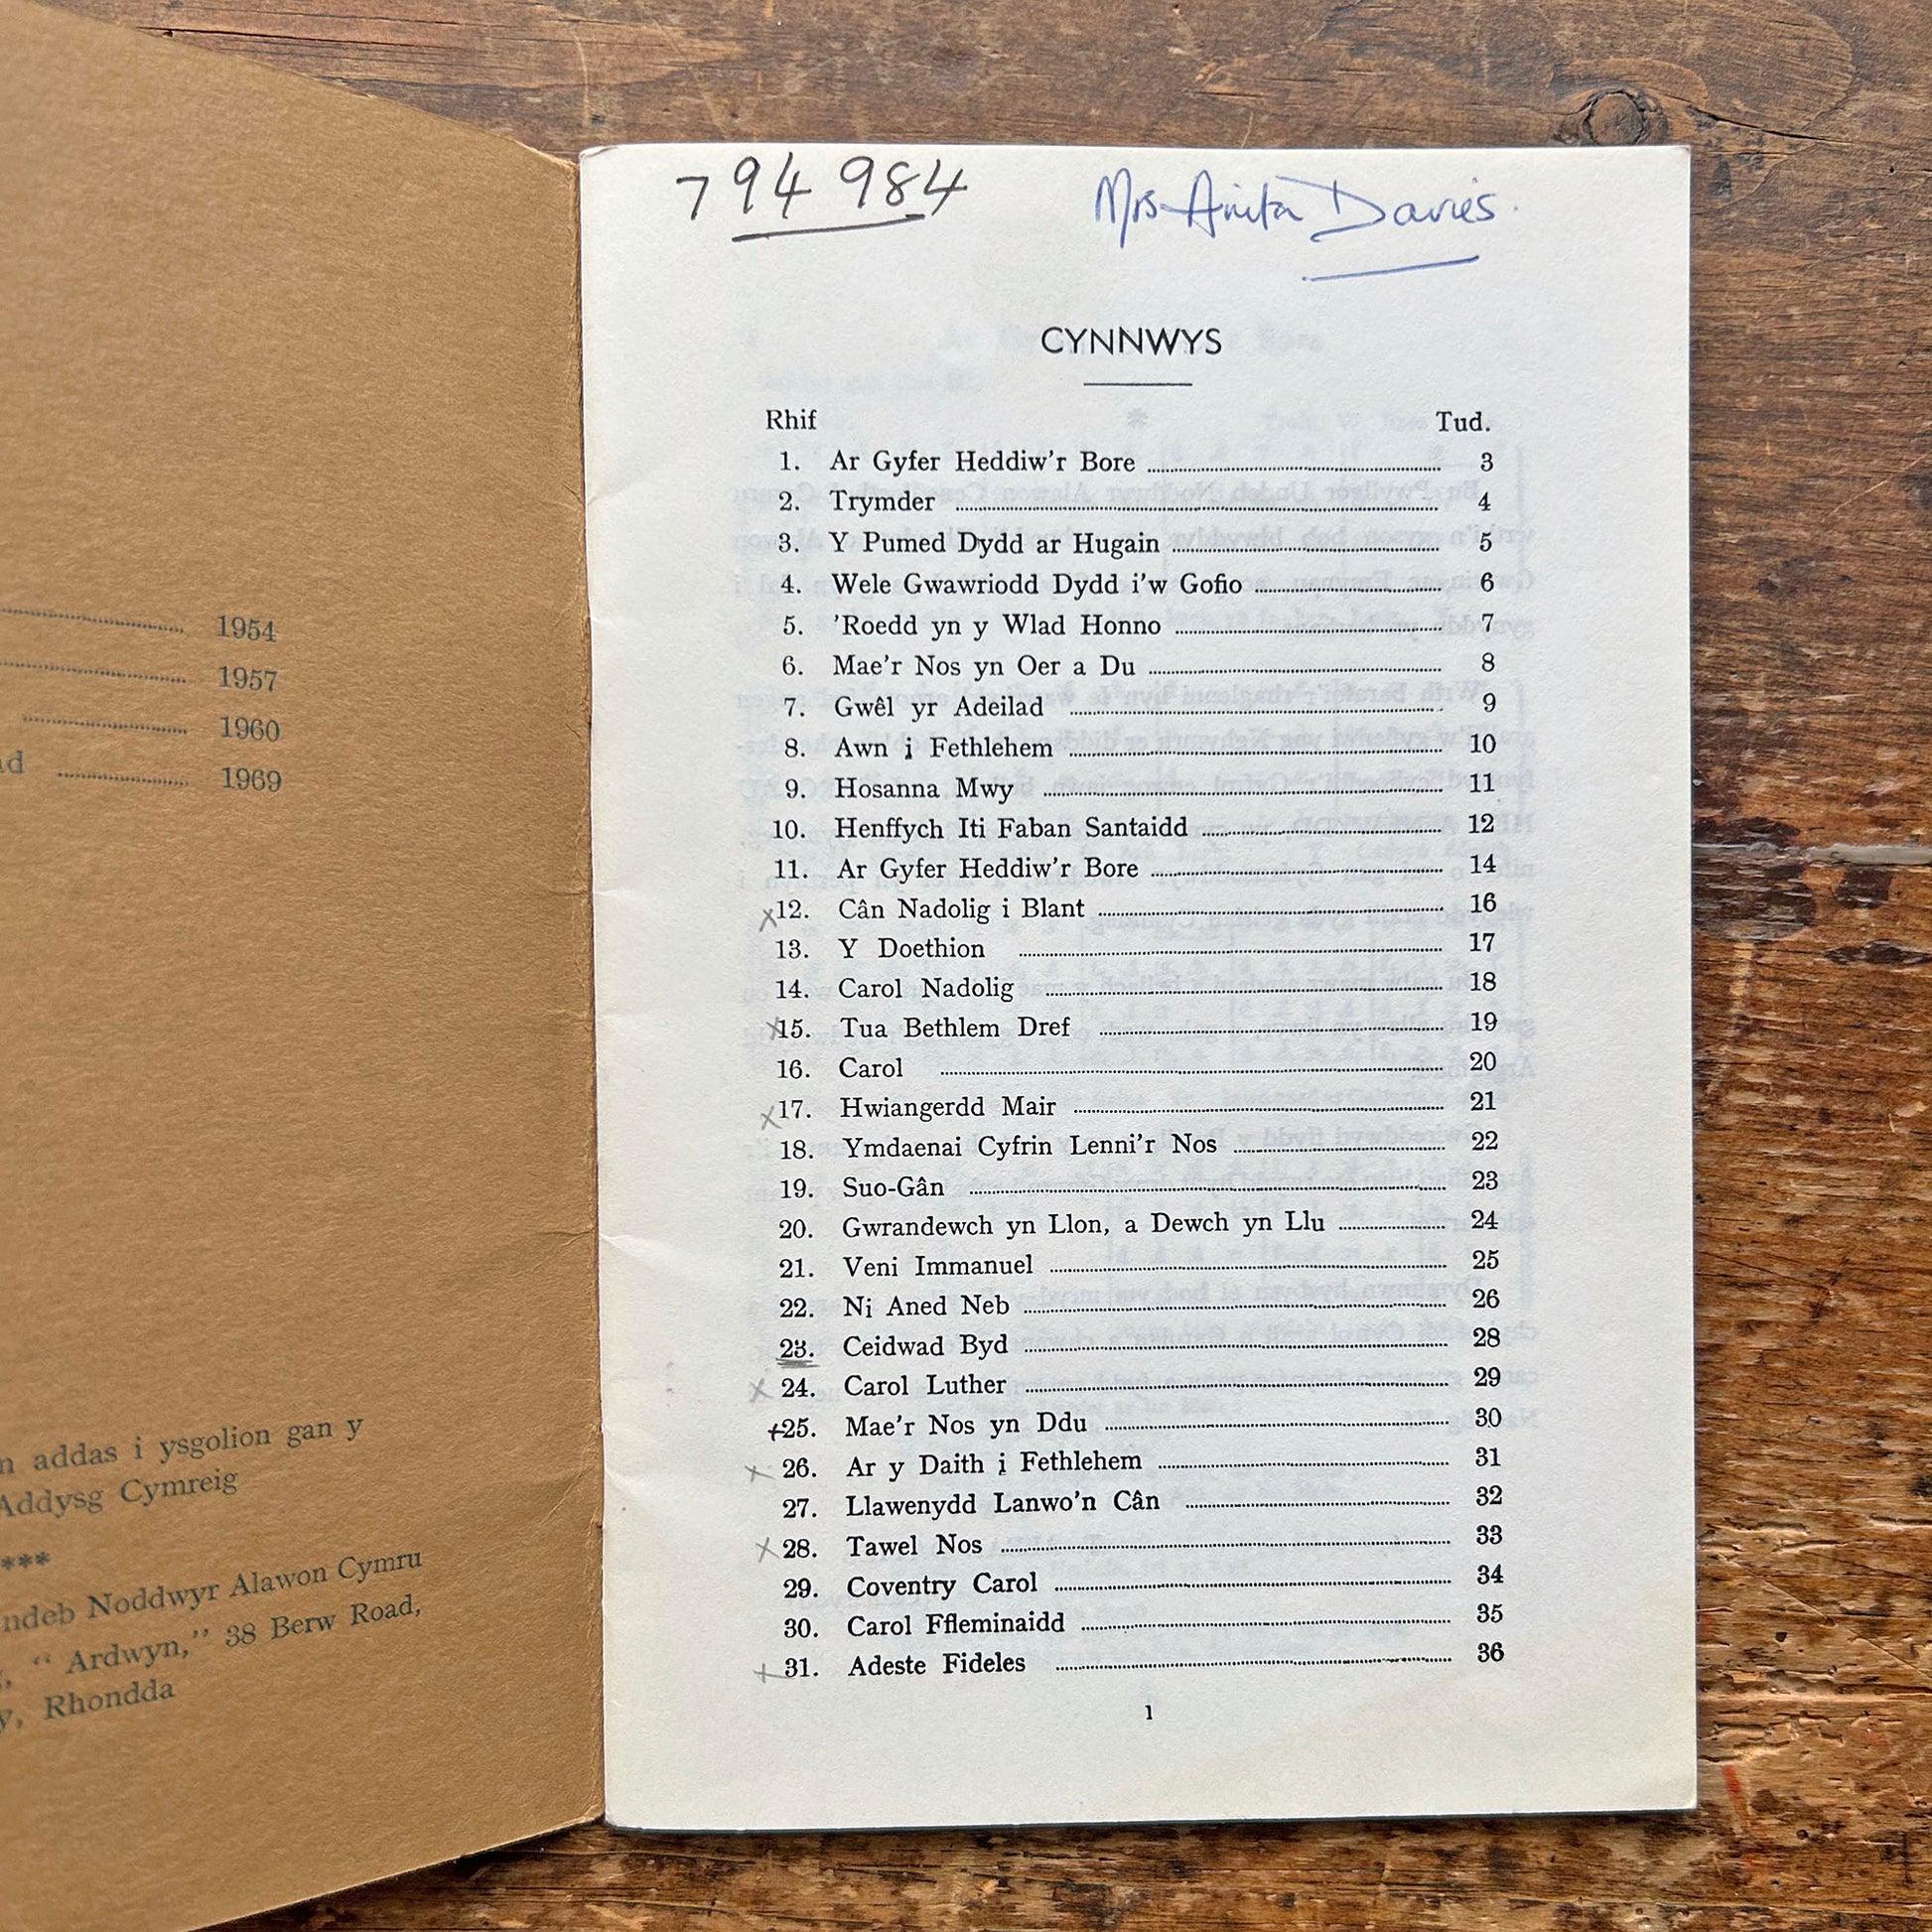 1954
1957
1960
ad 1969
addas i ysgolion gan y
Addysg Cymreig
***
ndeb Noddwyr Alawon Cymru
“ Ardwyn,” 38 Berw Road,
y, Rhondda
794 984
Mrs Anita Davies.
CYNNWYS
Rhif Tud.
1. Ar Gyfer Heddiw'r Bore 3
2. Trymder 4
3. Y Pumed Dydd ar Hugain 5
4. Wele Gwawriodd Dydd i'w Gofio 6
5. 'Roedd yn y Wlad Honno 7
6. Mae'r Nos yn Oer a Du 8
7. Gwêl yr Adeilad 9
8. Awn i Fethlehem 10
9. Hosanna Mwy 11
10. Henffych Iti Faban Santaidd 12
11. Ar Gyfer Heddiw'r Bore 14
x12. Cân Nadolig i Blant 16
13. Y Doethion 17
14. Carol Nadolig 18
x15. Tua Bethlem Dref 19
16. Carol 20
x17. Hwiangerdd Mair 21
18. Ymdaenai Cyfrin Lenni'r Nos 22
19. Suo-Gân 23
20. Gwrandewch yn Llon, a Dewch yn Llu 24
21. Veni Immanuel 25
22. Ni Aned Neb 26
23. Ceidwad Byd 28
x 24. Carol Luther 29
+25. Mae'r Nos yn Ddu 30
x 26. Ar y Daith i Fethlehem 31
27. Llawenydd Lanwo'n Cân 32
x 28. Tawel Nos 33
29. Coventry Carol 34
30. Carol Ffleminaidd 35
x 31. Adeste Fideles 36
1